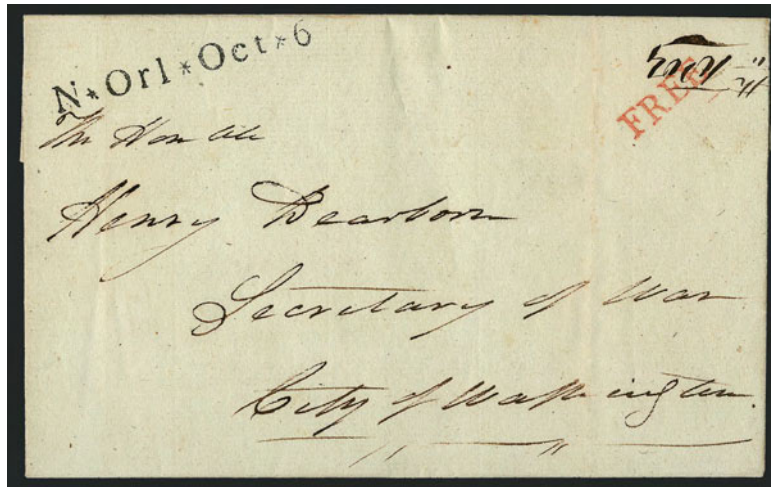 N*Orl*Oct*6
FREE
The Honble
Henry Dearborn
Secretary of War
City of Washington